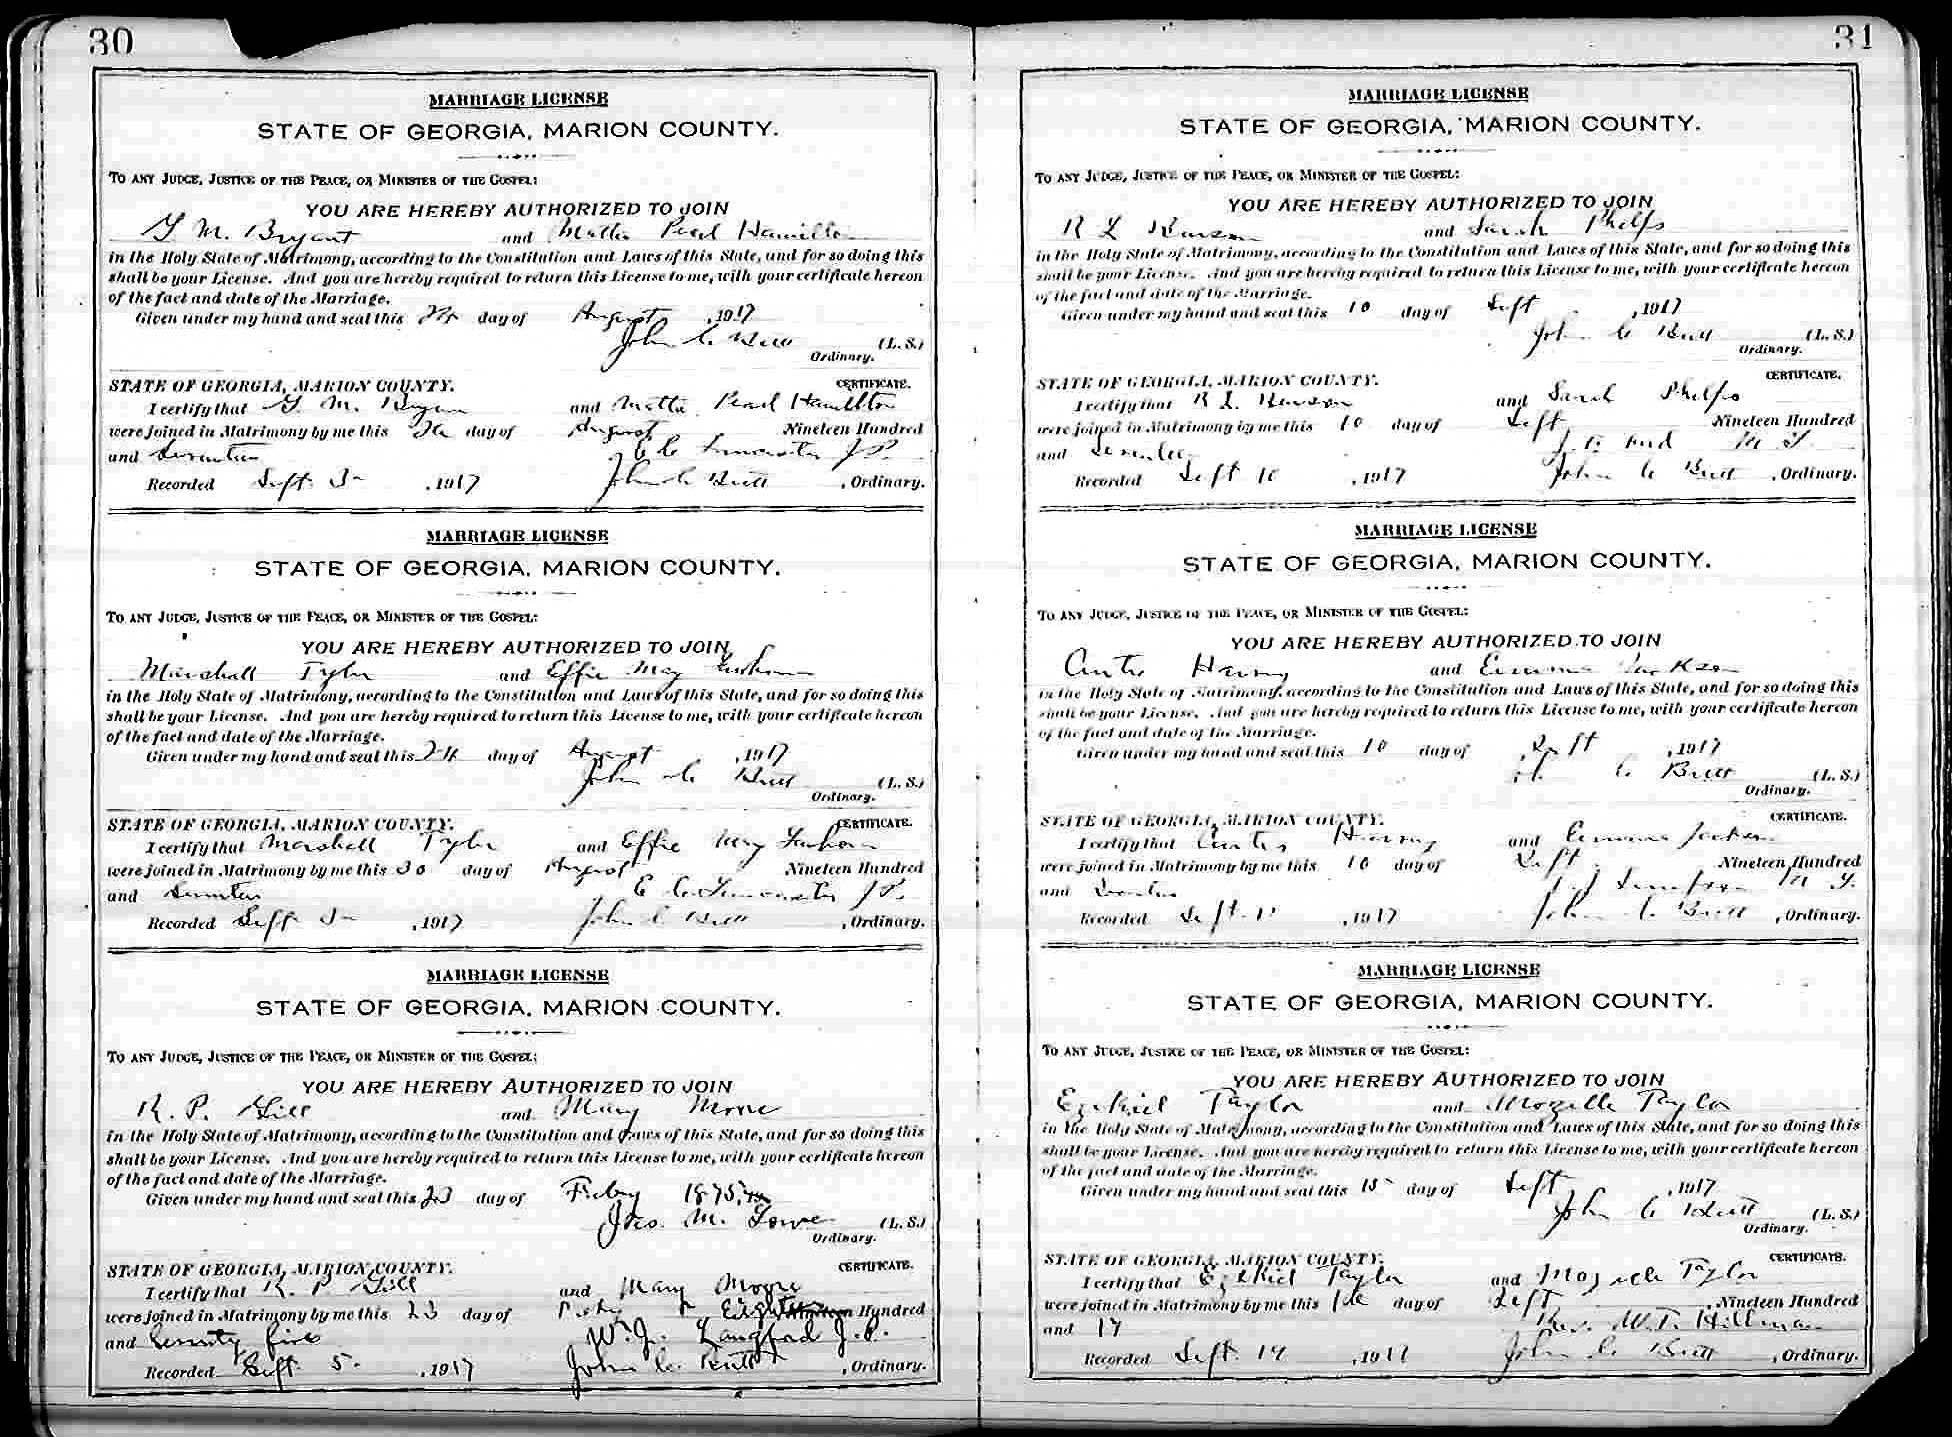 30
MARRIAGE LICENSE
STATE OF GEORGIA, MARION COUNTY.
TO ANY JUDGE, JUSTICE OF THE PEACE, OR MINISTER OF THE GOSPEL:
YOU ARE HEREBY AUTHORIZED TO JOIN
M. Bryant and Pearl Hamilton
in the Holy State of Matrimony, according to the Constitution and Laws of this State, and for so doing this
shall be your License. And you are hereby required to return this License to me, with your certificate hereon
of the fact and date of the Marriage.
Given under my hand and seal this day of August, 1917
John C. Butt (L. S.)
Ordinary.
STATE OF GEORGIA, MARION COUNTY. CERTIFICATE.
I certify that M. Bryan and Pearl Hamilton
were joined in Matrimony by me this day of August Nineteen Hundred
and Seventeen J P.
Recorded Sept., 1917 John C Butt, Ordinary.
MARRIAGE LICENSE
STATE OF GEORGIA, MARION COUNTY.
TO ANY JUDGE, JUSTICE OF THE PEACE, OR MINISTER OF THE GOSPEL:
YOU ARE HEREBY AUTHORIZED TO JOIN
Marshall Tyler and Effie May
in the Holy State of Matrimony, according to the Constitution and Laws of this State, and for so doing this
shall be your License. And you are hereby required to return this License to me, with your certificate hereon
of the fact and date of the Marriage.
Given under my hand and seal this day of August, 1917
John C Butt (L. S.)
Ordinary.
STATE OF GEORGIA, MARION COUNTY. CERTIFICATE.
I certify that Marshall Tyler and Effie May
were joined in Matrimony by me this 30 day of August Nineteen Hundred
and J P.
Recorded Sept, 1917 John C Butt, Ordinary.
MARRIAGE LICENSE
STATE OF GEORGIA, MARION COUNTY.
TO ANY JUDGE, JUSTICE OF THE PEACE, OR MINISTER OF THE GOSPEL:
YOU ARE HEREBY AUTHORIZED TO JOIN
R. P. Gill and Mary Moore
in the Holy State of Matrimony, according to the Constitution and Laws of this State, and for so doing this
shall be your License. And you are hereby required to return this License to me, with your certificate hereon
of the fact and date of the Marriage.
Given under my hand and seal this 23 day of Feby 1875
Jas. M. Lowe (L. S.)
Ordinary.
STATE OF GEORGIA, MARION COUNTY. CERTIFICATE.
I certify that R. P Gill and Mary Moore
were joined in Matrimony by me this 23 day of Feby Eighteen Hundred
and Seventy five W. J. Langford J. P.
Recorded Sept 5, 1917 John C. Butt, Ordinary.
31
MARRIAGE LICENSE
STATE OF GEORGIA, MARION COUNTY.
TO ANY JUDGE, JUSTICE OF THE PEACE, OR MINISTER OF THE GOSPEL:
YOU ARE HEREBY AUTHORIZED TO JOIN
R L and Sarah Phelps
in the Holy State of Matrimony, according to the Constitution and Laws of this State, and for so doing this
shall be your License. And you are hereby required to return this License to me, with your certificate hereon
of the fact and date of the Marriage.
Given under my hand and seal this 10 day of Sept, 1917
John C Butt (L. S.)
Ordinary.
STATE OF GEORGIA, MARION COUNTY. CERTIFICATE.
I certify that R L. and Sarah Phelps
were joined in Matrimony by me this 10 day of Sept Nineteen Hundred
and M G
Recorded Sept 10, 1917 John C Butt, Ordinary.
MARRIAGE LICENSE
STATE OF GEORGIA, MARION COUNTY.
TO ANY JUDGE, JUSTICE OF THE PEACE, OR MINISTER OF THE GOSPEL:
YOU ARE HEREBY AUTHORIZED TO JOIN
Curtis Harvey and Emma Jackson
in the Holy State of Matrimony, according to the Constitution and Laws of this State, and for so doing this
shall be your License. And you are hereby required to return this License to me, with your certificate hereon
of the fact and date of the Marriage.
Given under my hand and seal this 10 day of Sept, 1917
C Butt (L. S.)
Ordinary.
STATE OF GEORGIA, MARION COUNTY. CERTIFICATE.
I certify that Curtis Harvey and Emma Jackson
were joined in Matrimony by me this 10 day of Sept Nineteen Hundred
and M G.
Recorded Sept, 1917 John C. Butt, Ordinary.
MARRIAGE LICENSE
STATE OF GEORGIA, MARION COUNTY.
TO ANY JUDGE, JUSTICE OF THE PEACE, OR MINISTER OF THE GOSPEL:
YOU ARE HEREBY AUTHORIZED TO JOIN
Ezekiel Taylor and Mozelle Taylor
in the Holy State of Matrimony, according to the Constitution and Laws of this State, and for so doing this
shall be your License. And you are hereby required to return this License to me, with your certificate hereon
of the fact and date of the Marriage.
Given under my hand and seal this 15 day of Sept, 1917
John C Butt (L. S.)
Ordinary.
STATE OF GEORGIA, MARION COUNTY. CERTIFICATE.
I certify that Ezekiel Taylor and Mozelle Taylor
were joined in Matrimony by me this day of Sept, Nineteen Hundred
and 17 Rev. W. T. Hillman
Recorded Sept. 19, 1917 John C Butt, Ordinary.